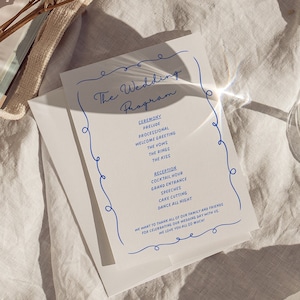 The Wedding
Program
CEREMONY
PRELUDE
PROCESSIONAL
WELCOME GREETING
THE VOWS
THE RINGS
THE KISS
RECEPTION
COCKTAIL HOUR
GRAND ENTRANCE
SPEECHES
CAKE CUTTING
DANCE ALL NIGHT
WE WANT TO THANK ALL OF OUR FAMILY AND FRIENDS
FOR CELEBRATING OUR WEDDING DAY WITH US.
WE LOVE YOU ALL SO MUCH!